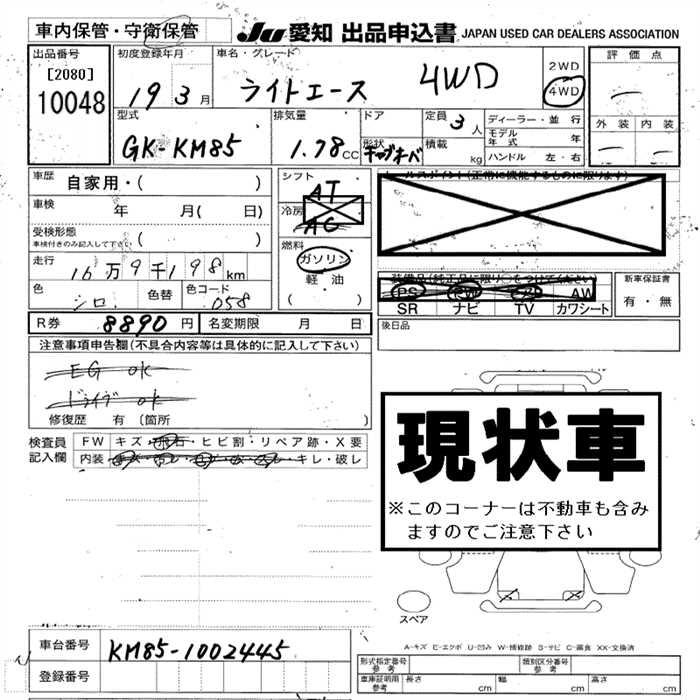 車内保管・守衛保管
Ju 愛知 出品申込書 JAPAN USED CAR DEALERS ASSOCIATION
出品番号
[2080]
10048
初度登録年月
19 3月
車名・グレード
ライトエース 4WD
2WD
4WD
評価点
外装 内装
型式
GK-KM85
排気量
1.78 CC
ドア
形状
キャブオーバ
定員 3人
積載 kg
ディーラー・並行
モデル年式 年
ハンドル 左・右
車歴 自家用・( )
シフト
AT
車検 年 月( 日)
冷房
AC
受検形態
車検付きのみ記入して下さい ( )
燃料
ガソリン
軽油
( ・ )
走行 16万9千198km
色 シロ 色替 色コード 058
セールスポイント(正常に機能するものに限ります)
装備品(純正品に限り○をつけてください)
PS PW AW
SR ナビ TV カワシート
新車保証書
有・無
R券 8890円 名変期限 月 日
後日品
注意事項申告欄(不具合内容等は具体的に記入して下さい)
EG OK
ドライブ OK
修復歴 有 〔箇所 〕
検査員
記入欄
FW キズ・飛石・ヒビ割・リペア跡・X要
内装 ・キレ・破レ
現状車
※このコーナーは不動車も含み
ますのでご注意下さい
スペア
A-キズ E-エクボ U-凹み W-補修跡 S-サビ C-腐食 XX-交換済
車台番号 KM85-1002445
登録番号
形式指定番号
参考
類別区分番号
参考
車庫証明用
参考
長さ cm 幅 cm 高さ cm